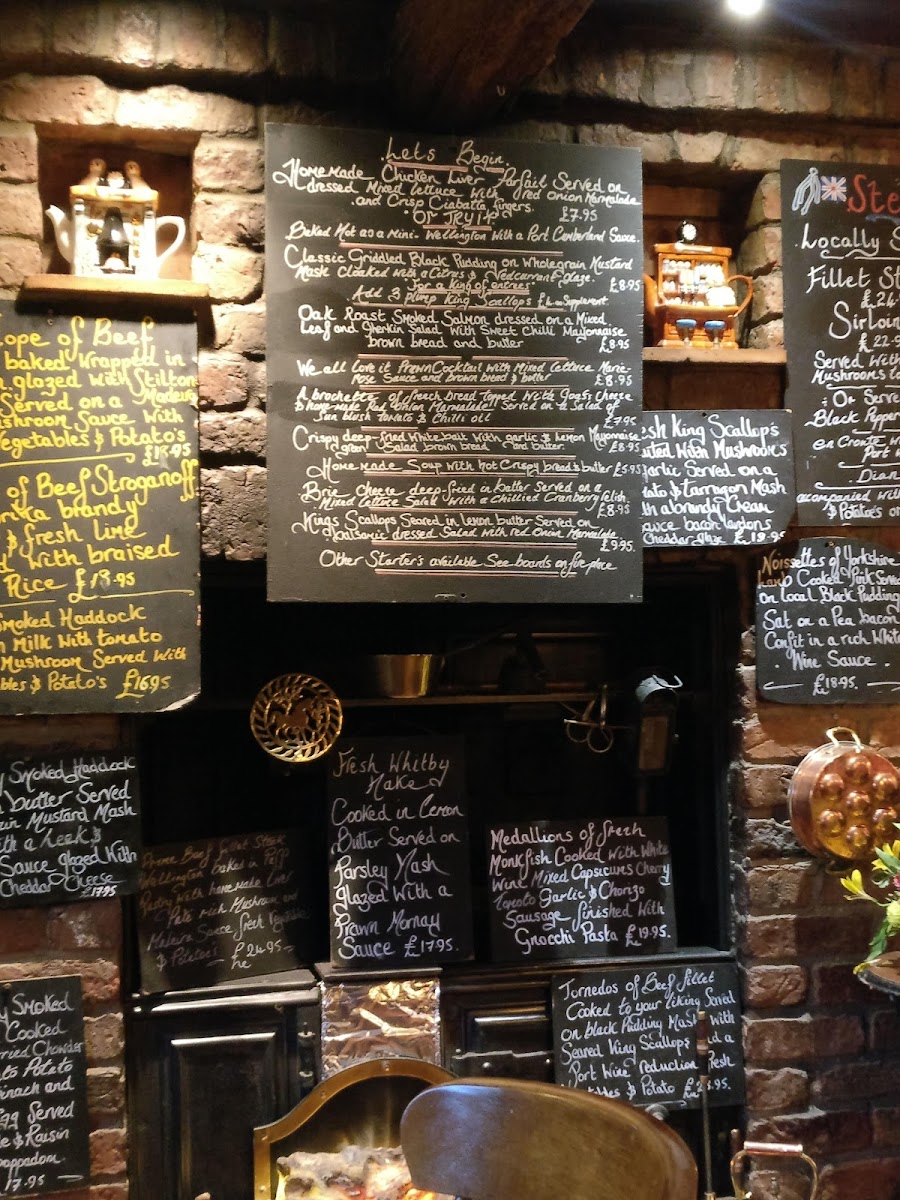 Lets Begin.
Homemade Chicken Liver Parfait Served on
dressed Mixed lettuce with Red Onion Marmalade
and Crisp Ciabatta fingers.
"Or TRY it" £7.95
Baked Hot as a Mini- Wellington With a Port Cumberland Sauce.
Classic Griddled Black Pudding on Wholegrain Mustard
Mash cloaked with a Citrus & Redcurrant glaze.
for a king of entrees £8.95
Add 3 plump King Scallops Supplement.
Oak Roast Smoked Salmon dressed on a Mixed
Leaf and Gherkin Salad with Sweet Chilli Mayonnaise
brown bread and butter £8.95
We all love it Prawn Cocktail with Mixed lettuce Marie-
Rose Sauce and brown bread & butter £8.95
A brochette of french bread topped with Goats Cheese
& home-made Red Onion Marmalade. Served on a Salad of
Sun blush tomato & Chilli oil £7.95
Crispy deep-fried whitebait with garlic & lemon Mayonnaise
green Salad brown bread and butter £8.95
Homemade Soup with hot Crispy bread & butter £5.95
Brie cheese deep fried in batter Served on a
Mixed lettuce Salad With a Chillied Cranberry relish
£8.95
Kings Scallops Seared in lemon butter Served on
balsamic dressed Salad with red Onion Marmalade
£9.95.
Other Starter's available See boards on fire place
lope of Beef
baked Wrapped in
glazed with Stilton
Served on a Madeira
shroom Sauce with
Vegetables & Potato's
£18.95
of Beef Stroganoff
rika brandy
& fresh lime
With braised
Rice £18.95
Smoked Haddock
Milk With tomato
Mushroom Served With
bles & Potato's £16.95
Smoked Haddock
butter Served
in Mustard Mash
th a leek &
Sauce glazed With
Cheddar Cheese
£17.95
Smoked
Cooked
Chowder
to Potato
inach and
gg Served
le & Raisin
oppadom.
17.95
Prime Beef fillet Steak
Wellington baked in Puff
Pastry With home made liver
Pate rich Mushroom and
Madeira Sauce fresh Vegetables
& Potatoe's £24.95
Fresh Whitby
Hake
Cooked in Lemon
Butter Served on
Parsley Mash
glazed With a
Prawn Mornay
Sauce £17.95.
Medallions of fresh
Monkfish Cooked With White
Wine Mixed Capsicums Cherry
Tomato Garlic & Chorizo
Sausage finished With
Gnocchi Pasta £19.95.
Tornedos of Beef fillet
Cooked to your liking Served
on black Pudding Mash With
Seared King Scallops and a
Port Wine reduction fresh
Vegetables & Potato
esh King Scallop's
uted With Mushrooms
garlic Served on a
ato & tarragon Mash
th a brandy Cream
auce bacon lardons
Cheddar glaze £19.95
Ste
Locally S
Fillet St
£24
Sirloin
£22.9
Served With
Mushrooms to
Or Serve
Black Pepper
en Croute W
Port W
Dian
accompanied wit
& Potatoe's or
Noissettes of Yorkshire
Lamb Cooked Pink Served
on Local Black Pudding
Sat on a Pea bacon
Confit in a rich White
Wine Sauce.
£18.95.